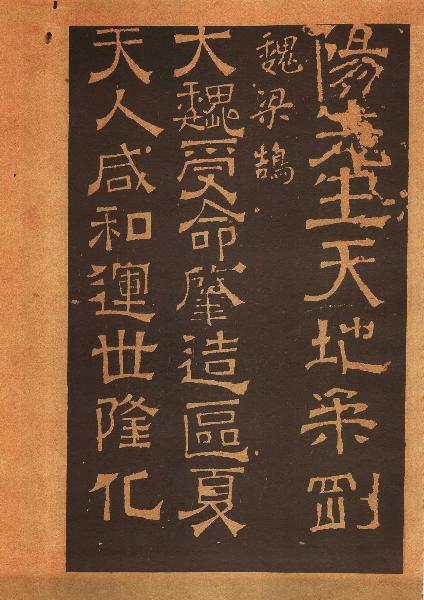 陽生天地柔剛
魏梁鵠
大魏受命肇造區夏
天人咸和運世隆化